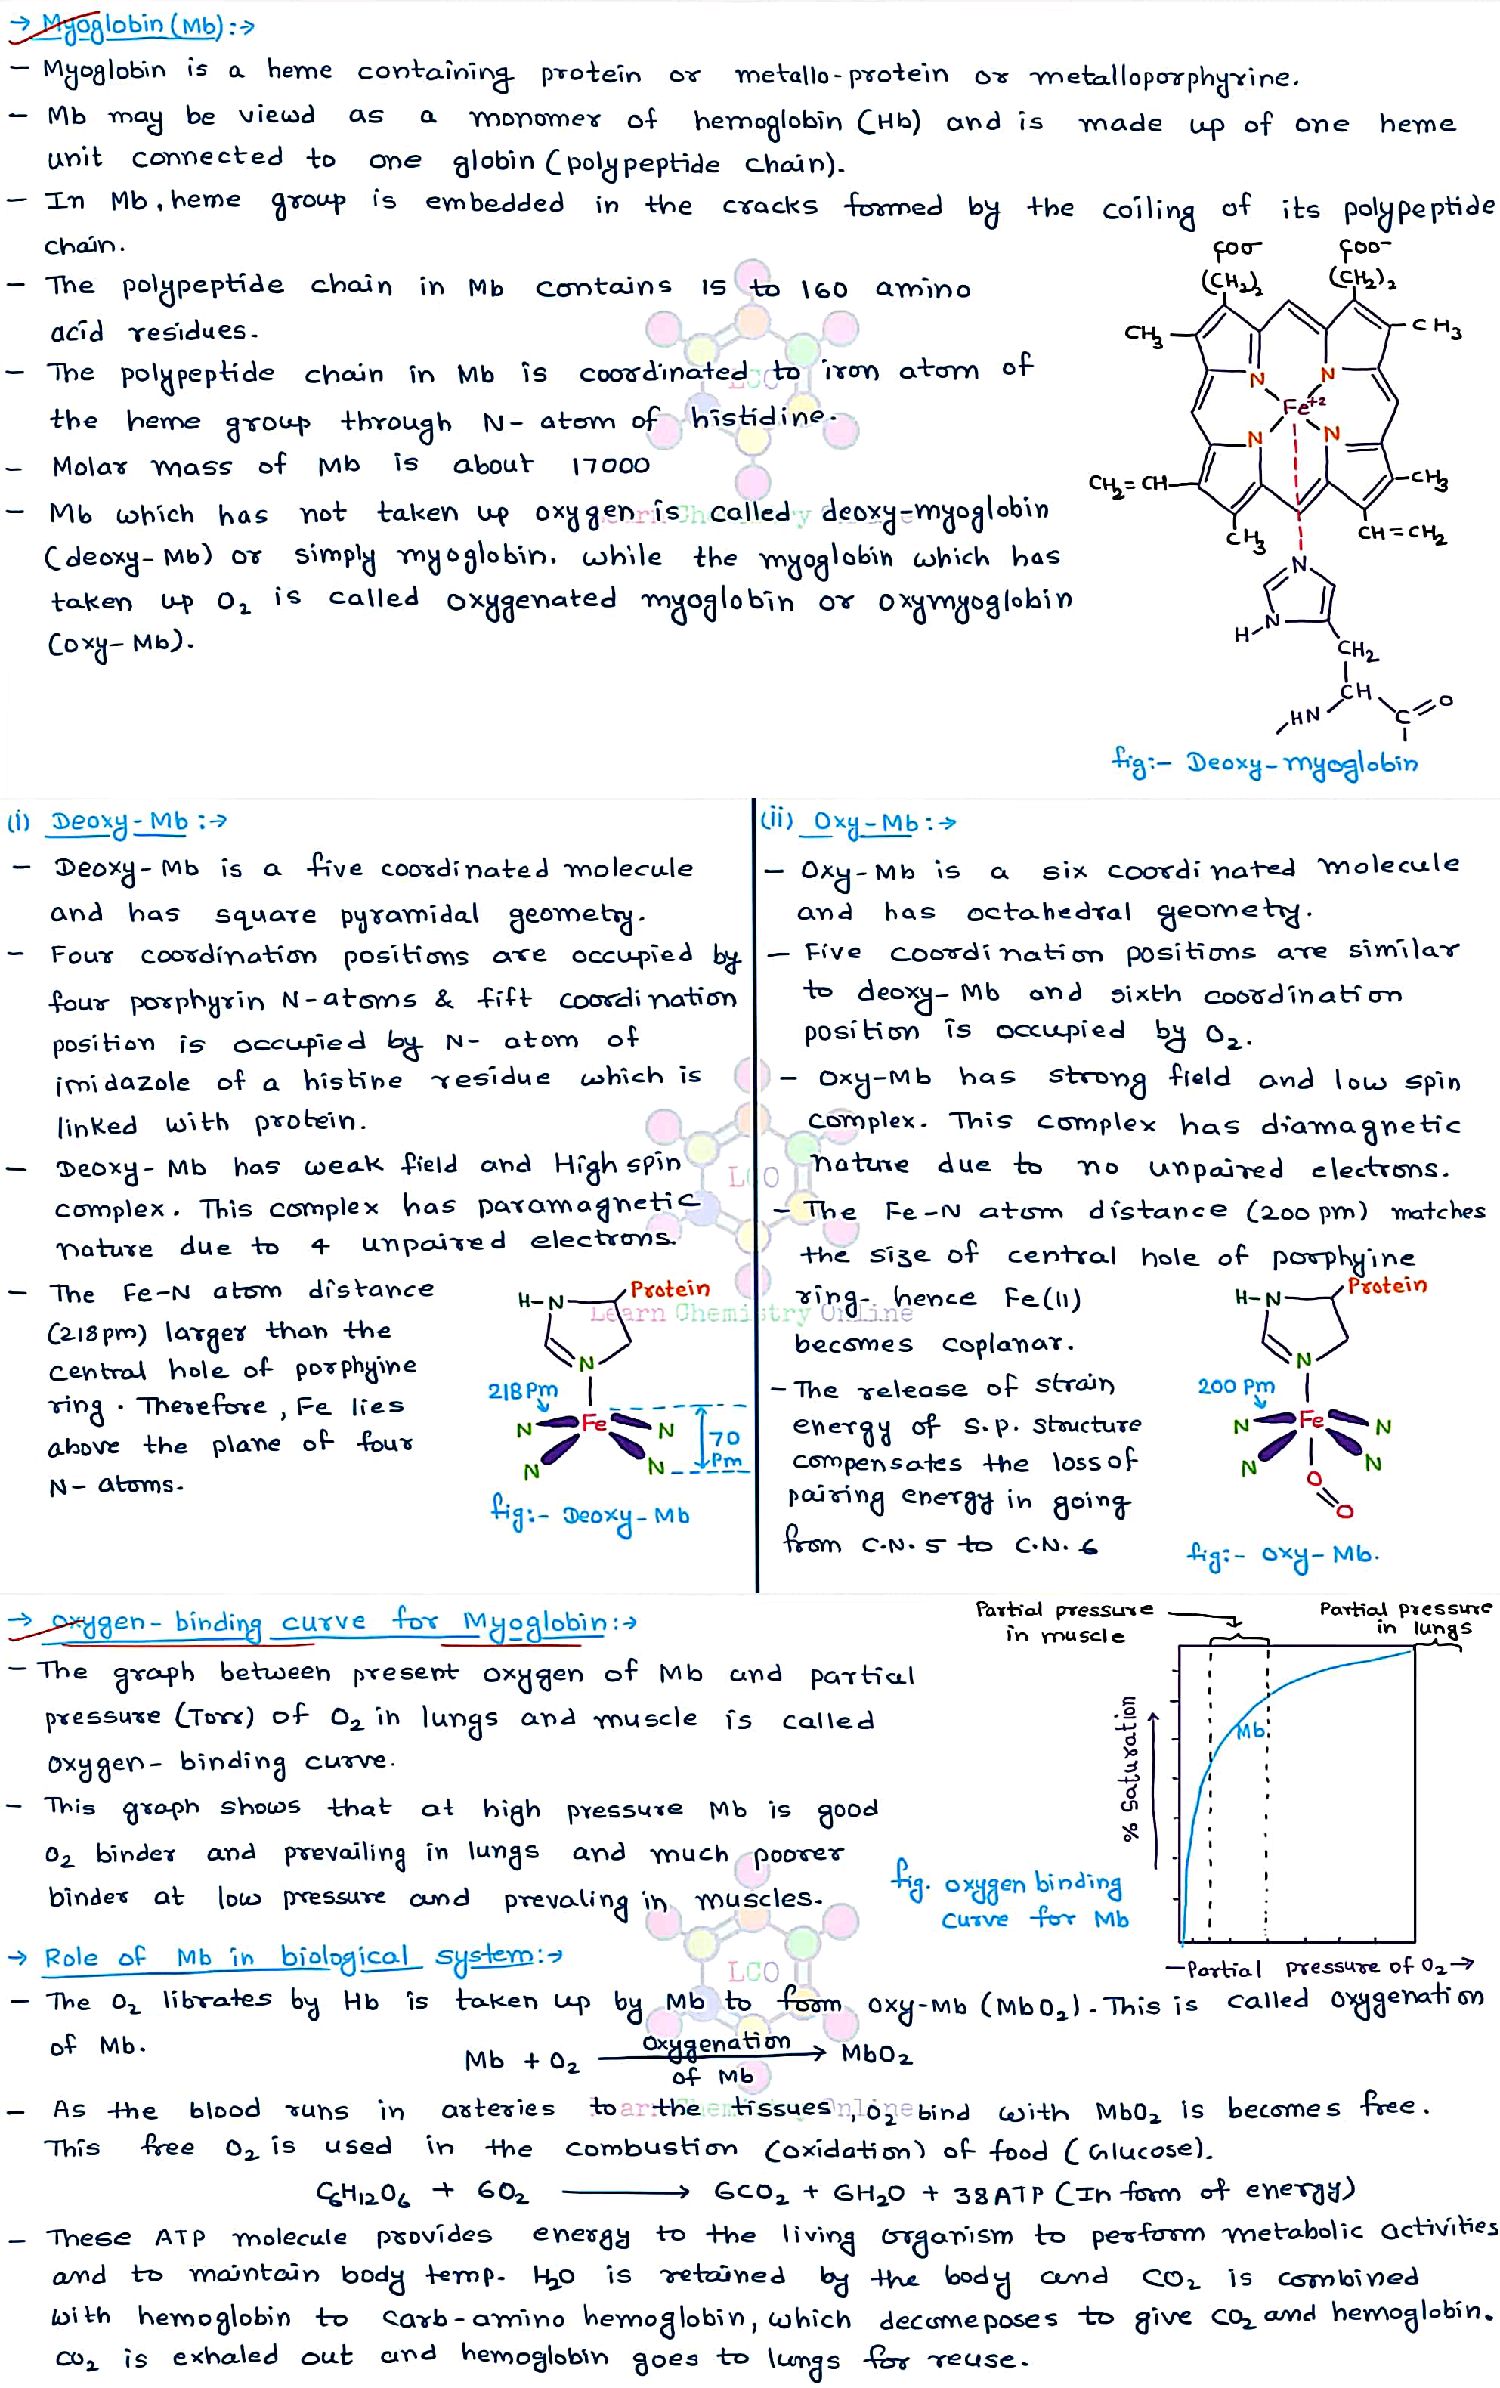 → Myoglobin (Mb) :→
– Myoglobin is a heme containing protein or metallo-protein or metalloporphyrine.
– Mb may be viewd as a monomer of hemoglobin (Hb) and is made up of one heme
unit connected to one globin (polypeptide chain).
– In Mb, heme group is embedded in the cracks formed by the coiling of its polypeptide
chain.
– The polypeptide chain in Mb contains 15 to 160 amino
acid residues.
– The polypeptide chain in Mb is coordinated to iron atom of
the heme group through N- atom of histidine.
– Molar mass of Mb is about 17000
– Mb which has not taken up oxygen is called deoxy-myoglobin
(deoxy-Mb) or simply myoglobin. while the myoglobin which has
taken up O₂ is called oxygenated myoglobin or oxymyoglobin
(oxy-Mb).
COO⁻ COO⁻
(CH₂)₂ (CH₂)₂
CH₃ CH₃
N N
Fe⁺²
N N
CH₂=CH CH₃
CH₃ CH=CH₂
N
H-N
CH₂
CH
HN C=O
fig:- Deoxy-myoglobin
(i) Deoxy-Mb :→
– Deoxy-Mb is a five coordinated molecule
and has square pyramidal geometry.
– Four coordination positions are occupied by
four porphyrin N-atoms & fift coordination
position is occupied by N- atom of
imidazole of a histine residue which is
linked with protein.
– Deoxy-Mb has weak field and High spin
complex. This complex has paramagnetic
nature due to 4 unpaired electrons.
– The Fe-N atom distance
(218pm) larger than the
central hole of porphyine
ring. Therefore, Fe lies
above the plane of four
N- atoms.
H-N Protein
N
218 Pm
N Fe N
70
Pm
N N
fig:- Deoxy-Mb
(ii) Oxy-Mb :→
– Oxy-Mb is a six coordinated molecule
and has octahedral geometry.
– Five coordination positions are similar
to deoxy-Mb and sixth coordination
position is occupied by O₂.
– Oxy-Mb has strong field and low spin
complex. This complex has diamagnetic
nature due to no unpaired electrons.
– The Fe-N atom distance (200 pm) matches
the size of central hole of porphyine
ring- hence Fe(II)
becomes coplanar.
– The release of strain
energy of s.p. structure
compensates the loss of
pairing energy in going
from C.N. 5 to C.N. 6
H-N Protein
N
200 Pm
N Fe N
N N
O
O
fig:- oxy-Mb.
LCO
Learn Chemistry Online
→ oxygen- binding curve for Myoglobin:→
– The graph between present oxygen of Mb and partial
pressure (Torr) of O₂ in lungs and muscle is called
oxygen- binding curve.
– This graph shows that at high pressure Mb is good
O₂ binder and prevailing in lungs and much poorer
binder at low pressure and prevaling in muscles.
Partial pressure
in muscle
Partial pressure
in lungs
% Saturation
Mb
fig. oxygen binding
curve for Mb
Partial pressure of O₂→
→ Role of Mb in biological system:→
– The O₂ librates by Hb is taken up by Mb to foom oxy-Mb (MbO₂). This is called oxygenation
of Mb.
Mb + O₂ oxygenation of Mb → MbO₂
– As the blood runs in arteries to the tissues, O₂ bind with MbO₂ is becomes free.
This free O₂ is used in the combustion (oxidation) of food (Glucose).
C₆H₁₂O₆ + 6O₂ → 6CO₂ + 6H₂O + 38 ATP (In form of energy)
– These ATP molecule provides energy to the living organism to perform metabolic activities
and to maintain body temp. H₂O is retained by the body and CO₂ is combined
with hemoglobin to carb-amino hemoglobin, which decomeposes to give CO₂ and hemoglobin.
CO₂ is exhaled out and hemoglobin goes to lungs for reuse.